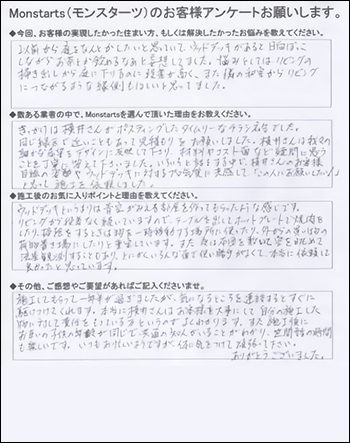 Monstarts(モンスターツ)のお客様アンケートお願いします。
◆今回、お客様の実現したかった住まい方、もしくは解決したかったお悩みを教えてください。
2人前から庭をなんとかしたいと思っていて、ウッドデッキがあると日向ぼっこ
しながらお茶とか飲めるなぁと妄想してました。悩みとしてはリビングの
掃き出しから庭に下りるのに段差が高く、また隣の和室からリビング
につながるような縁側もほしいと思ってました。
◆数ある業者の中で、Monstartsを選んで頂いた理由をお教えください。
きっかけは横井さんがポスティングしたタイムリーなチラシ広告でした。
同じ緑区で近いこともあって見積もりをお願いしました。横井さんは我々の
細かな要望をデザインに反映して下り、材料やコスト面など疑問に思う
ことを丁寧に答えて下さいました。いろいろと話をする中で、横井さんのお客様
目線の姿勢やウッドデッキに対するプロ意識に共感して「この人にお願いしたい!」
と思い施工を依頼しました。
◆施工後のお気に入りポイントと理由を教えてください。
ウッドデッキというよりは青空がみえる部屋を作ってもらったような感じです。
リビングから段差なく続いていますので、テーブルを出してホットプレートで焼肉を
したり、掃除をするときは物を一時移動する場所に使ったり、外からの買い物の
荷物置き場にしたりと重宝しています。また夜は布団を敷いて空を眺めて
流星観測することもあり、とにかくいろんな面で使い勝手がよくて、本当に依頼して
良かったと思っています。
◆その他、ご感想やご要望があればご記入くださいませ。
施工してもらって一年半が過ぎましたが、気になるところを連絡するとすぐに
駆けつけてくれます。本当に横井さんはお客様を大事にして自分の施工した
物に対して責任をもっている方というのがよくわかります。また施工後に
お互いの子供の年齢が同じで、共通の知人がいることがわかり、世間話の時間
も楽しいです。いつもお忙しいようですが、体に気をつけて頑張って下さい。
ありがとうございました。